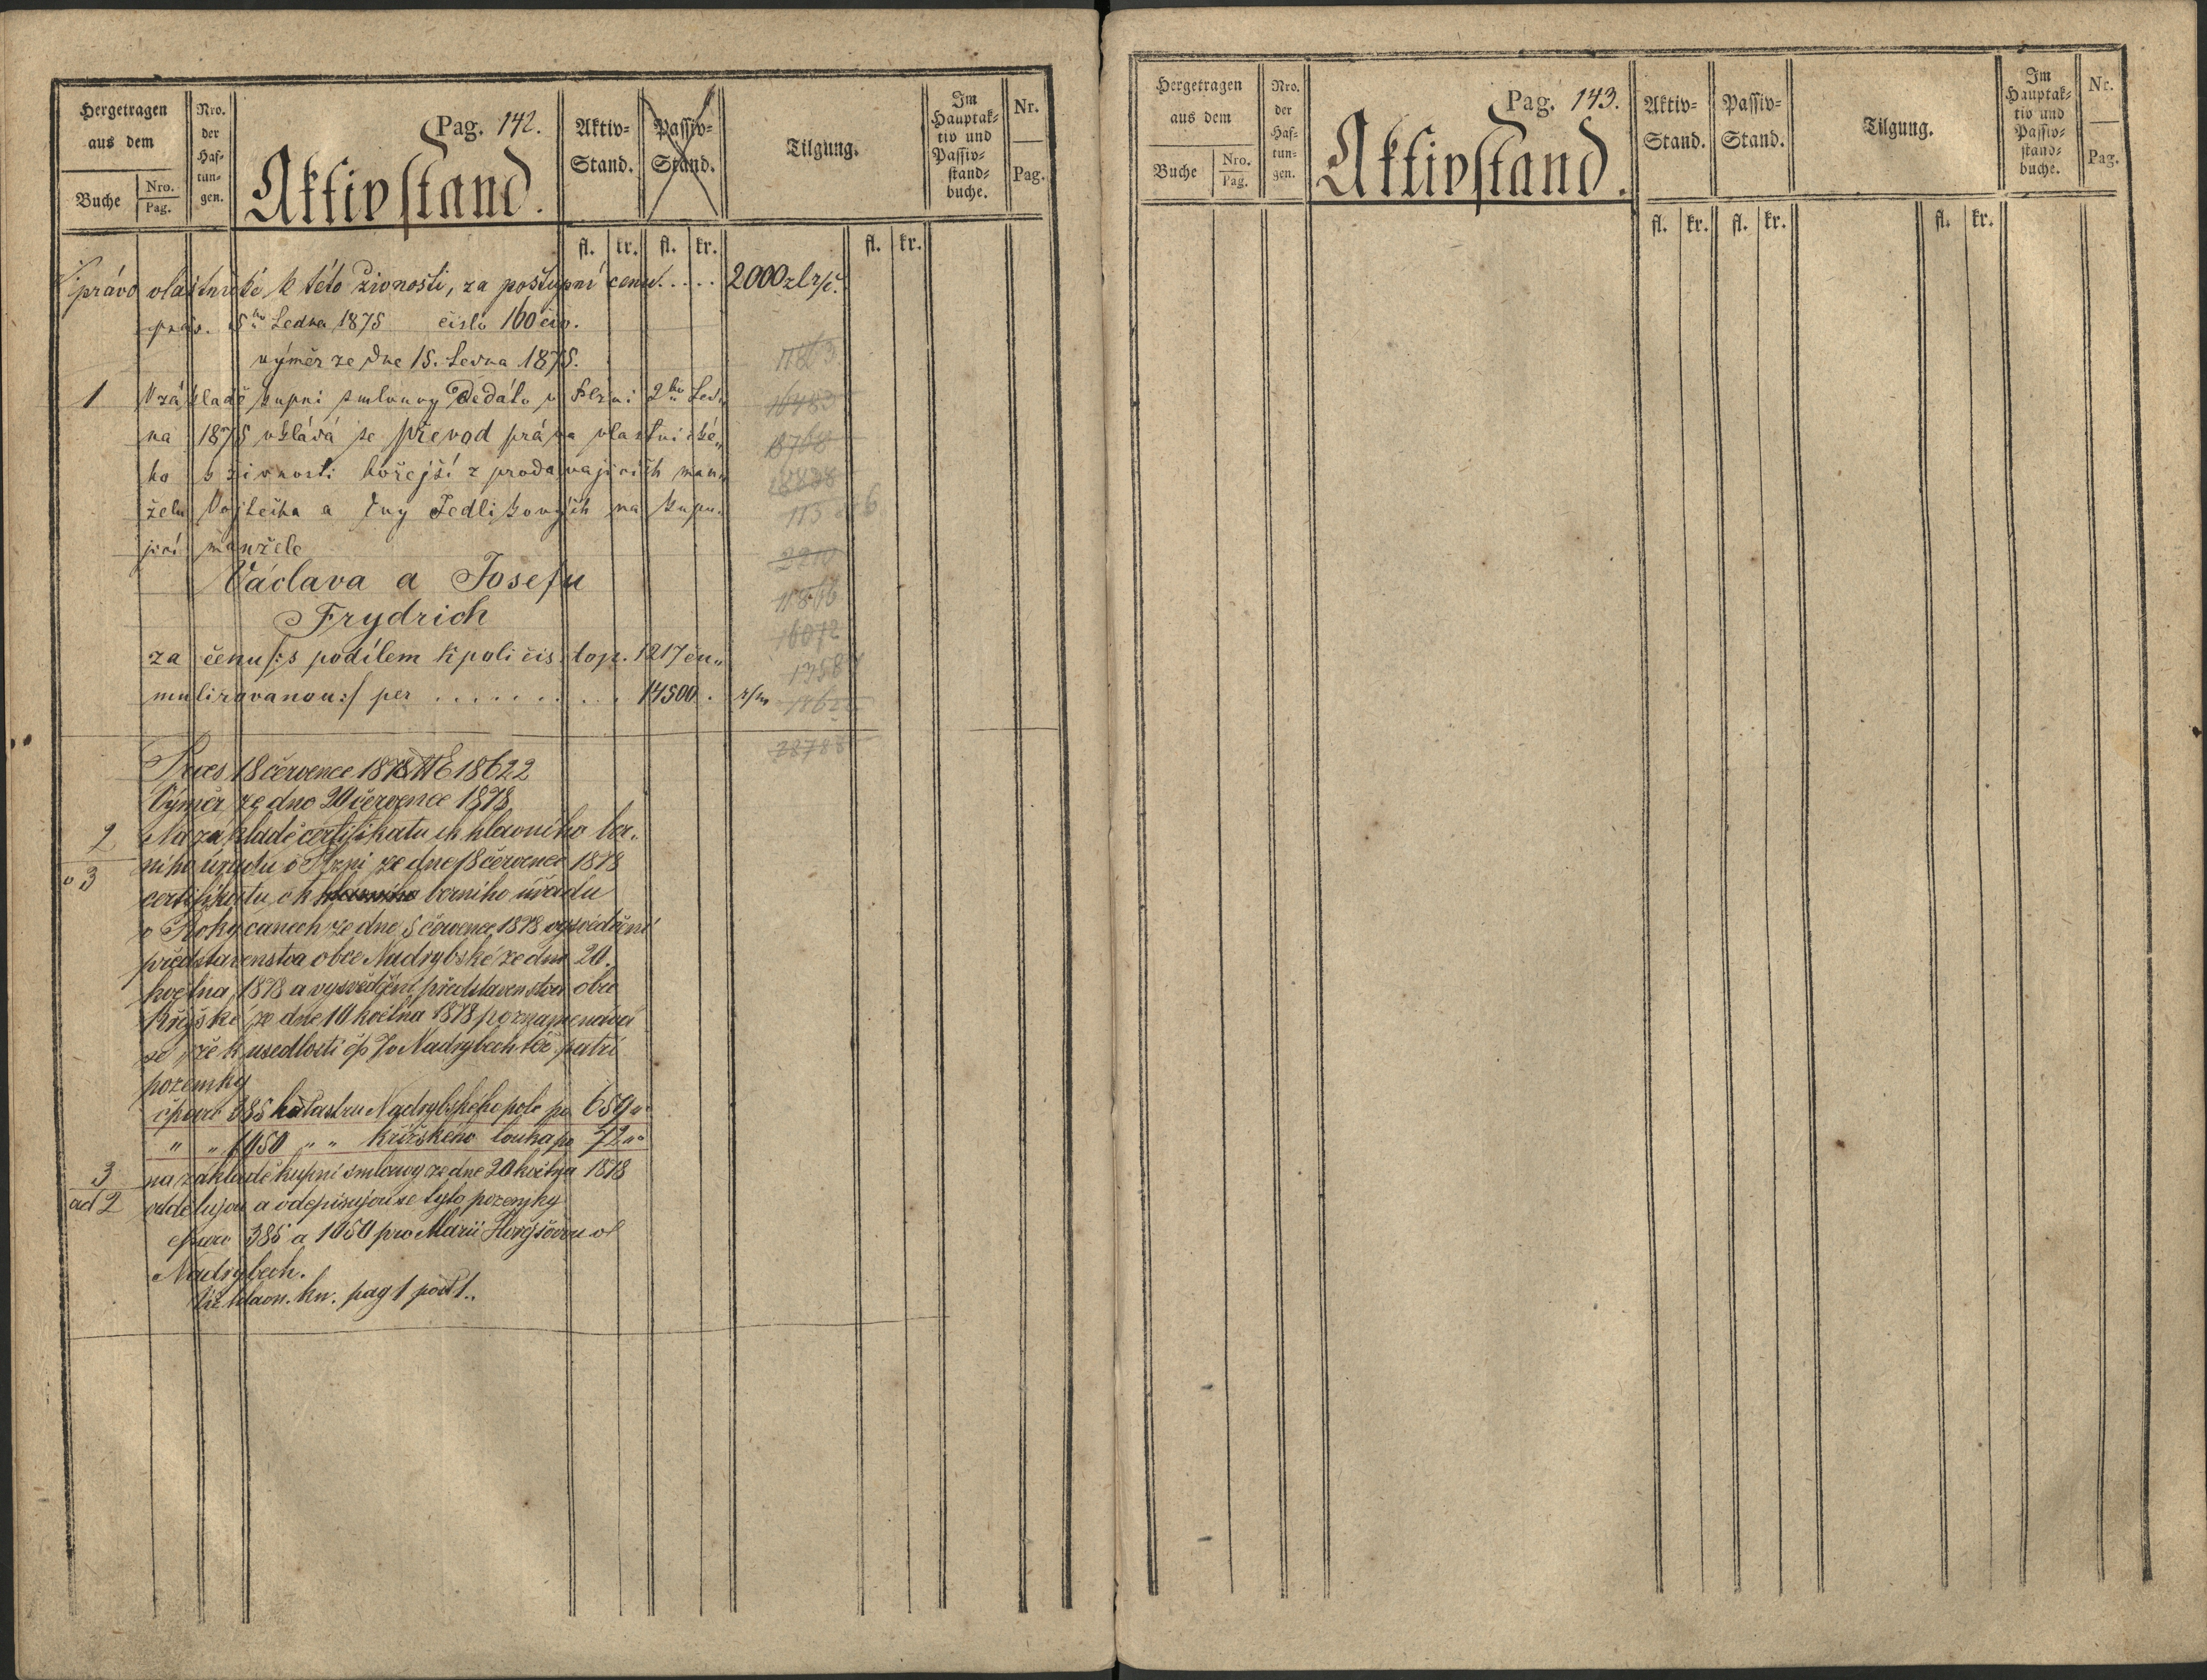 Hergetragen aus dem
Buche
Nro. Pag.
Nro. der Haftungen.
Pag. 142.
Aktivstand.
Aktiv-Stand.
Passiv-Stand.
Tilgung.
Im Hauptaktiv und Passivstandbuche.
Nr.
Pag.
fl. kr. fl. kr. fl. kr.
právo vlastnické k této živnosti, za postupní cenu..... 2000 zl r/č.
präs. 5ho Ledna 1875 číslo 160 civ.
výměr ze dne 15. Ledna 1875.
1 V základě kupní smlouvy Dedáto v Plzni 2ho Led„
na 1875 vkládá se převod práva vlastnické„
ho k živnosti hořejší z prodávajících man„
želu Vojtěcha a Any Jedlikových na kupu„
jící manžele
Václava a Josefu
Frydrich
za cenu /:s podílem k poli čís. top. 1217 cu„
mulirovanou:/ per ......... 14500. r/m
Praes 18 července 1878 NE 18622
Výměr ze dne 20 července 1878
2 Na základě certifikatu ck hlavního ber„
v 3 ního úřadu v Plzni ze dne 18 července 1878
certifikatu ck berního úřadu
v Rokycanech ze dne 5 července 1878 vysvědčení
představenstva obce Nadrybské ze dne 20.
května 1878 a vysvědčení představenstva obce
Křížské ze dne 10 května 1878 poznamenává
se, že k usedlosti čp 7 v Nadrybech též patří
pozemky
čparc 385 katastru Nadrybského pole po 659
" " 1050 " " Křížského louka po 72
3 na základě kupní smlouvy ze dne 20 května 1878
ad 2 oddělujou a odepisujou se tyto pozemky
čparc 385 a 1050 pro Marii v
Nadrybech.
Viz hlavn. kn. pag 1 post 1.
11863
16483
18622
Hergetragen aus dem
Buche
Nro. Pag.
Nro. der Haftungen.
Pag. 143.
Aktivstand.
Aktiv-Stand.
Passiv-Stand.
Tilgung.
Im Hauptaktiv und Passivstandbuche.
Nr.
Pag.
fl. kr. fl. kr. fl. kr.